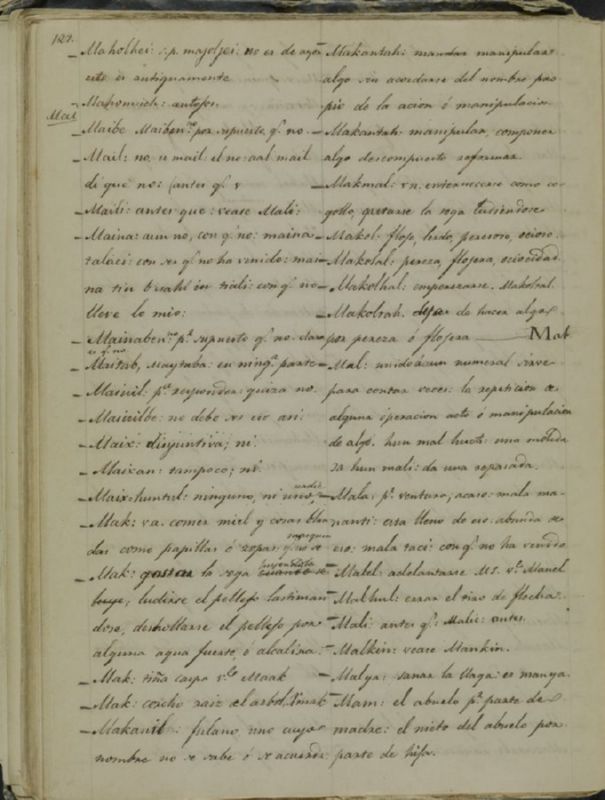 127.
Maholhei: s.p. majoljei: no es de agora
esto es antiguamente
Mahomech: antojos
Mai
Maibe Maiben por supuesto q.e no
Mail: no, u mail el no: aal mail
di que no: (antes q.e
Maili: antes que: vease Mali:
Maina: aun no, con q.e no: maina
talaci: con se q.e no ha venido: mai
na tin bisahl en triali: con q.e no
lleve lo mio:
Mainaben p.r supuesto q.e no. claro
es q.e no
Maitab, maytaba: en ning.a parte
Maiuil: p.a responder: quiza no.
Maiuilbe: no debe ser eso asi.
Maix: disjuntiva; ni
Maixan: tampoco; ni
Maixhuntul: ninguno, ni uno,
nadie
Mak: va. comer miel y cosas blan
das como papillas ó sopas q.e no se
masquen
Mak: gastar la soga cuando se
suspendida
buye, ludirse el pellejo lastiman
dose, deshollarse el pellejo por
alguna agua fuerte, ó alcalina:
Mak: tiña caspa v.se Maak
Mak: corcho raiz el arbol
Makanil: fulano, uno cuyo
nombre no se sabe ó se acuerda
Makantah: mandar manipular
algo sin acordarse del nombre pro
pio de la acion ó manipulacion
Makantah manipular, componer
algo descompuesto reformar.
Makmal: v n. enternecerse como co
gollo, gastarse la soga ludiendose
Makol: flojo, lerdo, perezoso, ocioso
Makolal: pereza, flojera, ociocidad
Makolhal: emperezarse. Makolral.
Makolrah. dejar de hacer algo
por pereza ó flojera
Mal
Mal: unido á un numeral sirve
para contar veces: la repeticion de
alguna operacion acto ó manipulacion
de algo. hun mal huch: una molida
za hun mali: da una repasada.
Mala: p.r ventura; acaso: mala ma
nanti: esta lleno de eso: abunda de
eso: mala taci: con q.e no ha venido
Malel: adelantarse MS. v.se Manel
Malhul: errar el tiro de flecha
Mali: antes q.e: Malie: antes.
Malkin: vease Mankin.
Malya: sanar la llaga: es manya.
Mam: el abuelo p.r parte de
madre: el nieto del abuelo por
parte de hija.